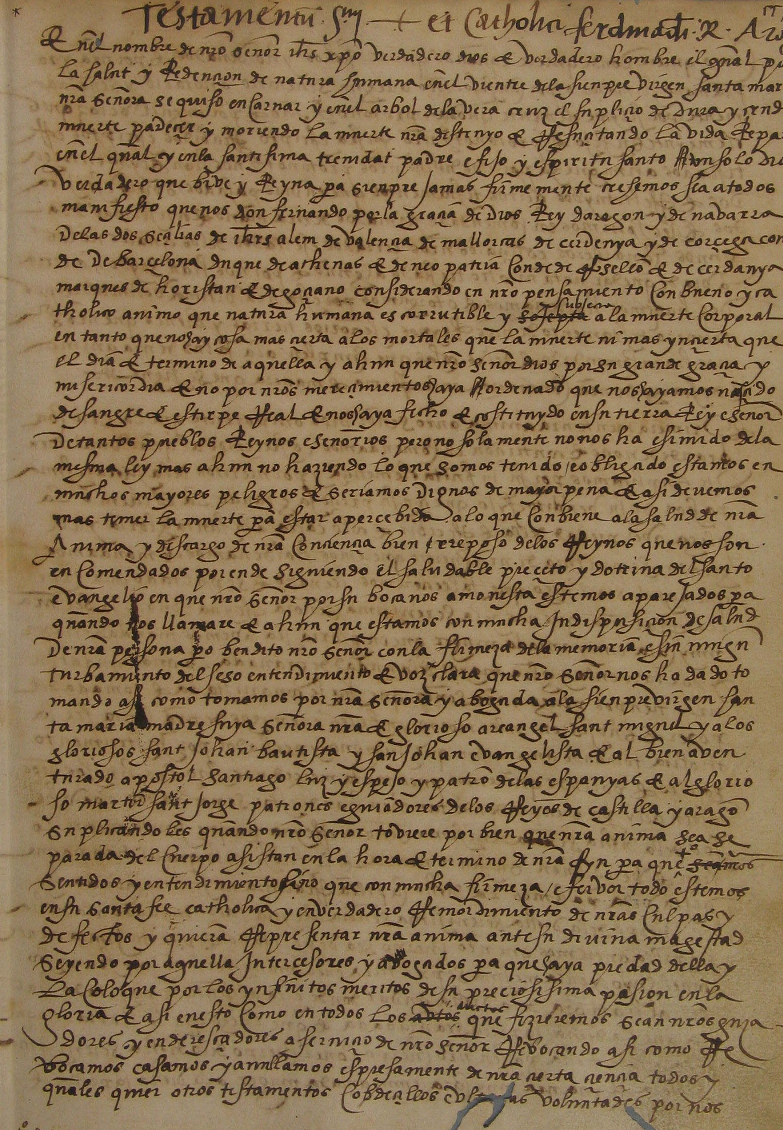 Testamentũ Sm̃j + et Catholici ferdinãdi R. A
En el nombre de nrõ señor ihs xpõ verdadero dios & verdadero hombre el qual p
la salut y Redencion de natura humana en el vientre dela sienpre virgen santa mar
nrã señora se quiso encarnar y en el arbol dela vera cruz el suplicio de dura y
muerte padecer y moriendo la muerte nrã destruyo & Resuscitando la vida Repa
en el qual y en la santisima trenidat padre e fijo y espiritu santo Aun solo di
verdadero que bive y Reyna pã sienpre jamas firme mente crehemos sea a todos
manifiesto que nos don fernando por la gracia de Dios Rey daragon y de nabarra
Delas dos secilias de ihrs alem de valencia de mallorcas de cerdenya y de corcega con
de De barcelona duque de athenas & de neo patria Conde de Roselo & de cerdanya
marques de horestan & de gociano considerando en nrõ pensamiento con bueno y ca
tholico animo que natura humana es corrutible y subjecta a la muerte corporal
en tanto que no hay cosa mas cierta a los mortales que la muerte ni mas yncierta que
el dia & termino de aquella y ahun que nrõ señor dios por su grande gracia y
misericordia & no por nrõs merecimientos haya Hordenado que nos hayamos nacido
de sangre & estirpe Real & nos haya fecho & costituydo en su tierra Rey e señor
De tantos pueblos Reynos e señorios pero no solamente no nos ha esimido de la
mesma ley mas ahun no haziendo lo que somos tenido e obligado estamos en
muchos mayores peligros & seriamos dignos de mayor pena & asi devemos
mas temer la muerte pã estar apercebido a lo que conbiene a la salud de nrã
Anima y descargo de nrã Conciencia bien e reposo de los Reynos que nos son
en comendados por ende siguiendo el saludable preceto y dotrina del santo
evangelio en que nrõ señor por su boca nos amonesta estemos aparejados pa
quando nos llamare & ahun que estamos con mucha Indisposicion de salud
De nrã persona pò bendito nrõ señor con la firmeza de la memoria e sin ningũ
turbamiento del seso entendimiento & voz clara que nrõ señor nos ha dado to
mando asi como tomamos por nrã señora y abogada a la sienpre virgen san
ta maria madre suya señora nrã & glorioso arcangel sant miguel y a los
gloriosos sant johan bautista y san johan evangelista & al bien aven
turado apostol santiago luz y espejo y patrõ de las espanyas & al glorio
so martir sant jorge patrones e guiadores de los Reyes de castilla y aragõ
suplicando les quando nrõ señor toviere por bien que nrã anima sea se
parada del cuerpo asistan en la hora & termino de nrã fyn pã que seamos
sentidos y entendimiento sino que con mucha firmeza e fervor todo estemos
en su santa fee catholica y en verdadero Remordimiento de nrãs culpas y
defectos y quiera Representar nrã anima ante su divina magestad
seyendo por aquella Intercesores y abogados pã que haya piedad della y
La coloque por los ynfinitos meritos de su preciosisima pasion en la
gloria & asi en esto como en todos los autos que fizieremos sean nrõs guia
dores y enderesçadores a servicio de nrõ señor Revocando asi como Re
bocamos casamos y anullamos espresamente de nrã cierta ciencia todos y
quales quier otros testamentos cobdecilos e voluntades por nos